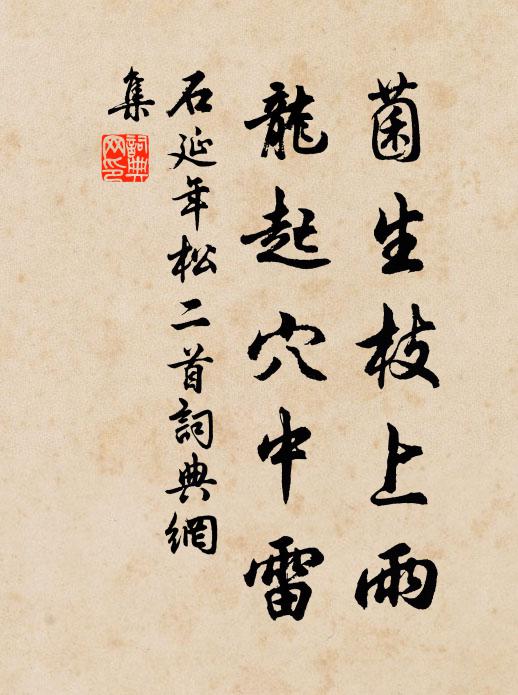 菌生枝上雨
龍起穴中雷
石延年松二首詞典網
集
詞典
网印